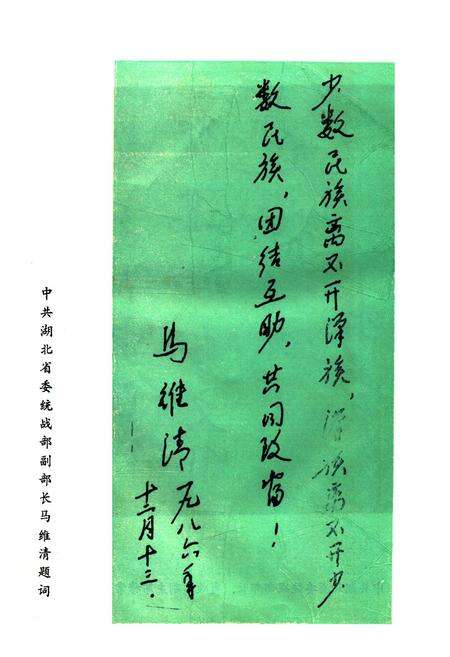 少数民族离不开汉族，汉族离不开少
数民族，团结互助，共同致富！
马维清一九八六年
十二月十三．
中共湖北省委统战部副部长马维清题词